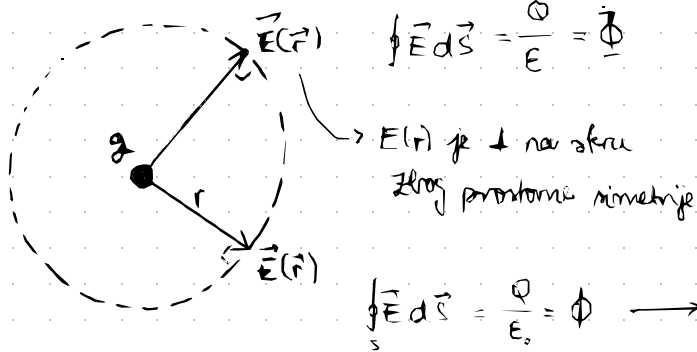 E⃗(r⃗)
∮ E⃗ dS⃗ = Q/ε = Φ
q
E(r) je ⊥ na
zbog prostorne simetrije
r
E⃗(r⃗)
∮ₛ E⃗ dS⃗ = Q/ε₀ = Φ →